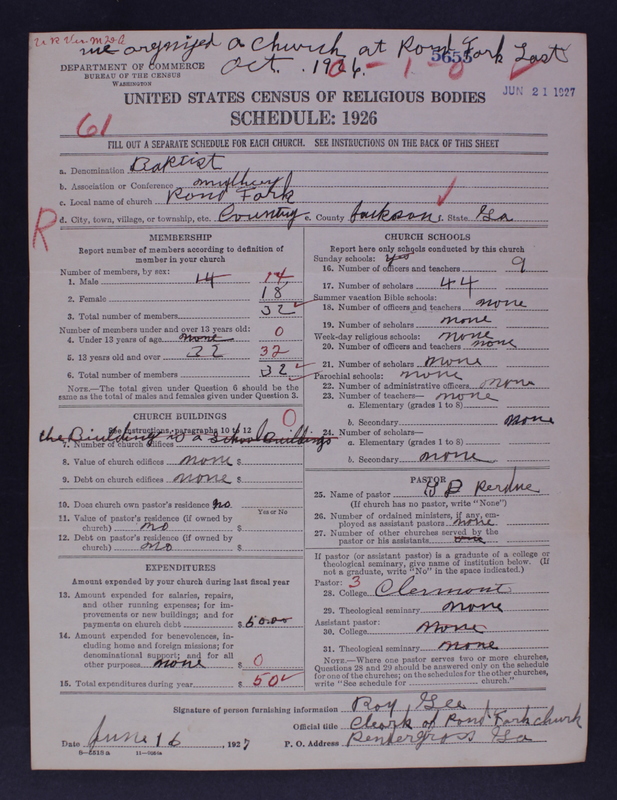 we orgnized a Church at Rond Fork Last
Oct. 1926.
5655
JUN 21 1927
DEPARTMENT OF COMMERCE
BUREAU OF THE CENSUS
WASHINGTON
UNITED STATES CENSUS OF RELIGIOUS BODIES
SCHEDULE: 1926
61
FILL OUT A SEPARATE SCHEDULE FOR EACH CHURCH. SEE INSTRUCTIONS ON THE BACK OF THIS SHEET
a. Denomination Baptist
b. Association or Conference
c. Local name of church Rond Fork
d. City, town, village, or township, etc. Country e. County Jackson f. State Ga
R
MEMBERSHIP
Report number of members according to definition of
member in your church
Number of members, by sex:
1. Male 14 14
2. Female 18
3. Total number of members 32
Number of members under and over 13 years old: 0
4. Under 13 years of age none
5. 13 years old and over 32 32
6. Total number of members 32
NOTE.—The total given under Question 6 should be the
same as the total of males and females given under Question 3.
CHURCH BUILDINGS 0
See instructions, paragraphs 10 to 12
the Building is a school Buildings
7. Number of church edifices
8. Value of church edifices none $
9. Debt on church edifices none $
10. Does church own pastor's residence no
Yes or No
11. Value of pastor's residence (if owned by
church) no $
12. Debt on pastor's residence (if owned by
church) no $
EXPENDITURES
Amount expended by your church during last fiscal year
13. Amount expended for salaries, repairs,
and other running expenses; for im-
provements or new buildings; and for
payments on church debt $ 50.00
14. Amount expended for benevolences, in-
cluding home and foreign missions; for
denominational support; and for all
other purposes none $ 0
15. Total expenditures during year $ 50
CHURCH SCHOOLS
Report here only schools conducted by this church
Sunday schools: yes
16. Number of officers and teachers 9
17. Number of scholars 44
Summer vacation Bible schools:
18. Number of officers and teachers none
19. Number of scholars none
Week-day religious schools: none
20. Number of officers and teachers none
21. Number of scholars none
Parochial schools: none
22. Number of administrative officers none
23. Number of teachers— none
a. Elementary (grades 1 to 8)
b. Secondary none
24. Number of scholars—
a. Elementary (grades 1 to 8)
b. Secondary none
PASTOR
25. Name of pastor Perdue
(If church has no pastor, write "None")
26. Number of ordained ministers, if any, em-
ployed as assistant pastors none
27. Number of other churches served by the
pastor or his assistants
If pastor (or assistant pastor) is a graduate of a college or
theological seminary, give name of institution below. (If
not a graduate, write "No" in the space indicated.)
Pastor: 3
28. College Clermont
29. Theological seminary none
Assistant pastor:
30. College none
31. Theological seminary none
NOTE.—Where one pastor serves two or more churches,
Questions 28 and 29 should be answered only on the schedule
for one of the churches; on the schedules for the other churches,
write "See schedule for church."
Signature of person furnishing information Roy Gee
Official title Cleark of Rond Fork church
Date June 16, 1927 P. O. Address Pendergross Ga
8-5518a